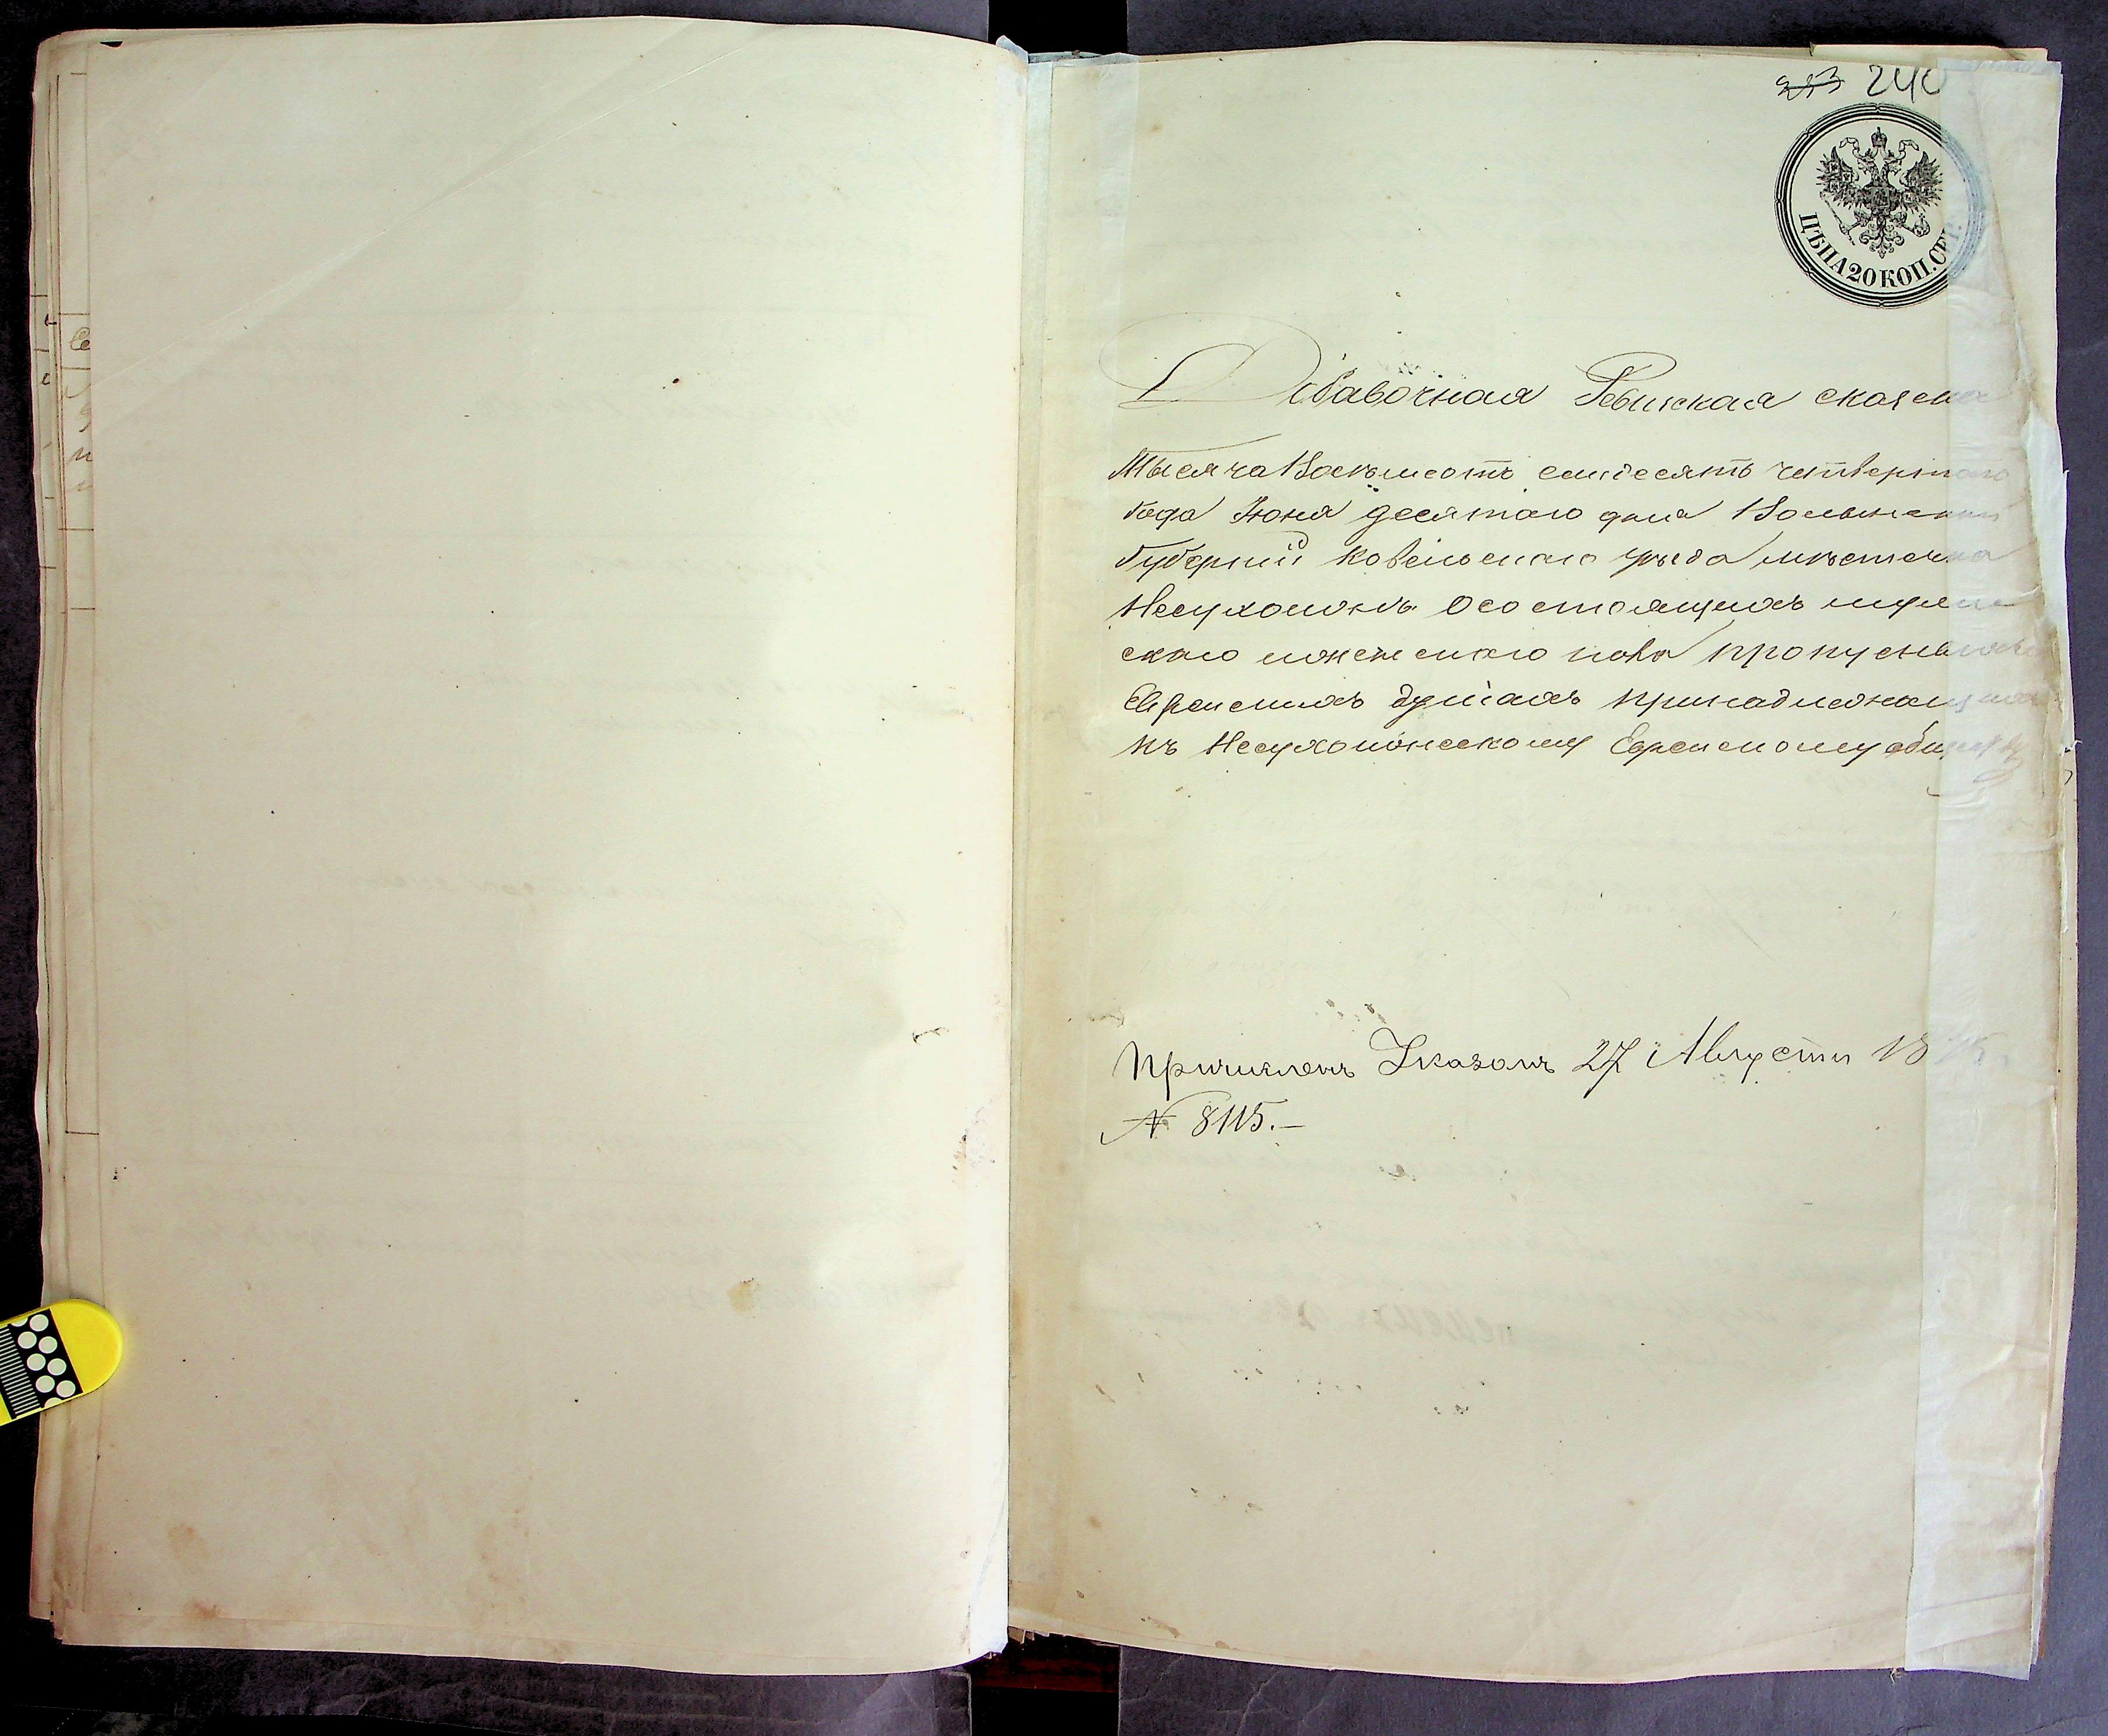 253 240
ЦѢНА 20 КОП. СЕР.
Добавочная Ревизская сказка
Тысяча Восемьсотъ семдесятъ четвертаго
Года Іюня десятаго дня Волынской
Губерніи Ковельскаго уѣзда мѣстечка
Несухоижъ О состоящихъ мужес
скаго и женскаго пола пропусныхъ
Еврейскихъ душахъ принадлежащихъ
къ Несухоижескому Еврейскому обществу
Причисленъ Указомъ 27 Августа 18
№ 8115.–